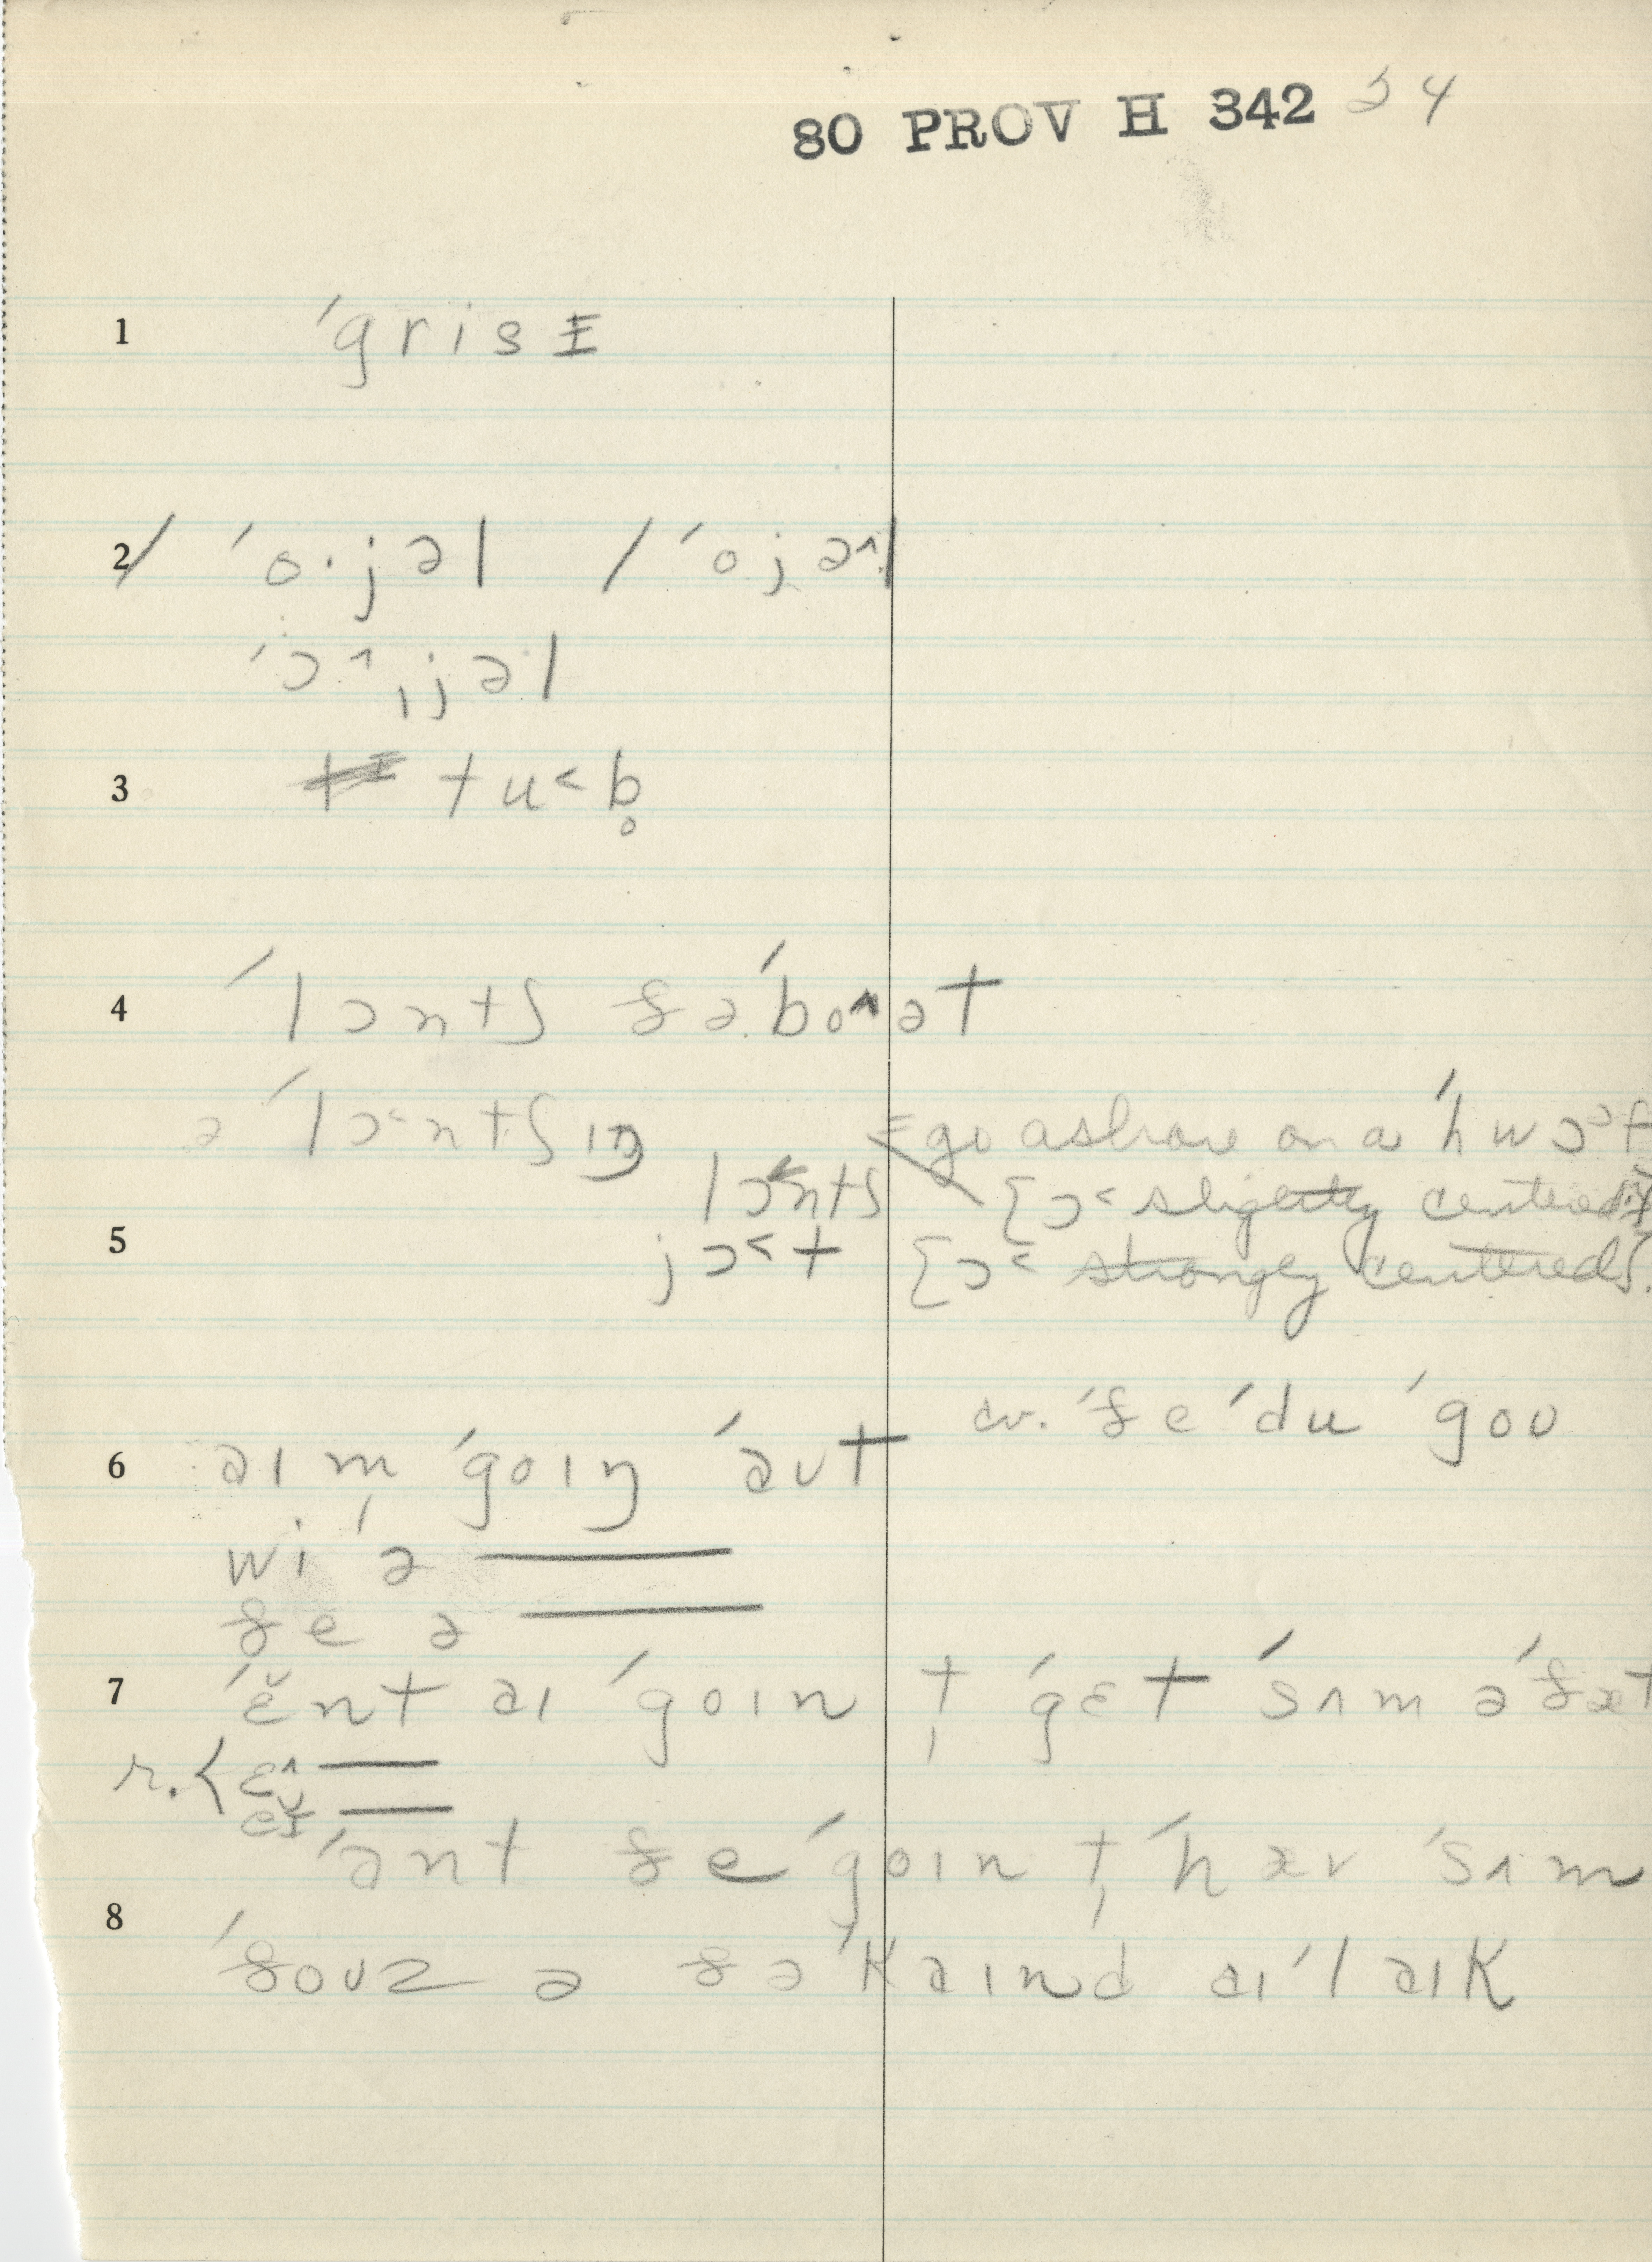 80 PROV H 342 24
1 ˈgrisᵻ
2 / ˈo·jəl / ˈojə^l
ˈɔ^ˌjəl
3 tu<b̥
4 ˈlɔntʃ ðəˈbo^ət
ə ˈlɔ<ntʃɪŋ = go ashore on a ˈhwɔət
lɔ<ntʃ [ɔ< slightly centered]
5 jɔ<t [ɔ< strongly centered].
cv. ˈðe ˈdu ˈgoʊ
6 aɪm ˈgoɪŋ ˈaʊt
wiˈə ——
ðe ə ——
7 ˈɛ̆nt aɪ ˈgoɪn t̩ ˈgɛt ˈsʌm əˈðæt
r. { ɛ^ ——
eᵻ̆ ——
ˈant ðe ˈgoɪn t̩ ˈhæv ˈsʌm
8 ˈðoʊz ə ðə ˈkaɪnd aɪ ˈlaɪk